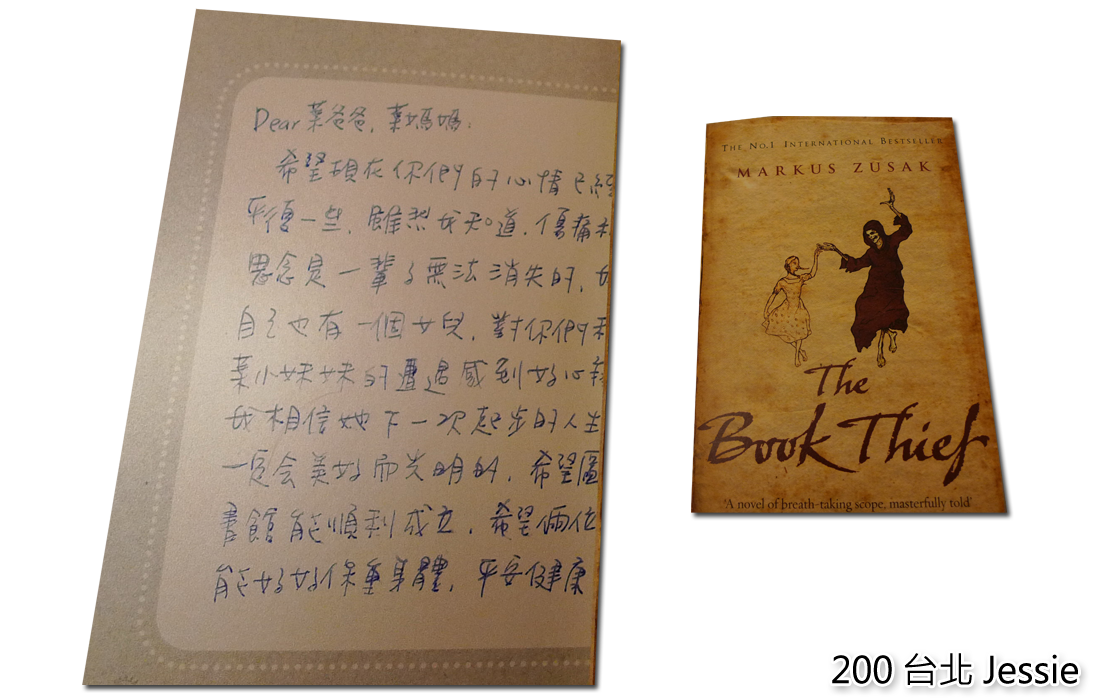 Dear 葉爸爸, 葉媽媽:
希望現在你們的心情已經
平復一些, 雖然我知道, 傷痛和
思念是一輩子無法消失的, 我
自己也有一個女兒, 對你們和
葉小妹妹的遭遇感到好心疼
我相信她下一次起步的人生
一定会美好而光明的, 希望圖
書館能順利成立, 希望倆位
能好好保重身體, 平安健康
THE NO.1 INTERNATIONAL BESTSELLER
MARKUS ZUSAK
The
Book Thief
'A novel of breath-taking scope, masterfully told'
200 台北 Jessie